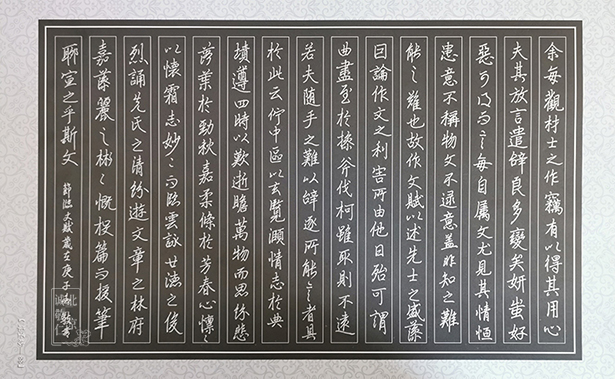 余每觀村士之作竊有以得其用心
夫其放言遣辭良多變矣妍蚩好
惡可得而言每自屬文尤見其情恒
患意不稱物文不逮意蓋非知之難
能之難也故作文賦以述先士之盛藻
因論作文之利害所由他日殆可謂
曲盡至於操斧伐柯雖取則不遠
若夫隨手之難以辭逐所能言者具
於此云佇中區以玄覽頤情志於典
墳遵四時以歎逝瞻萬物而思紛悲
落葉於勁秋嘉柔條於芳春心懍々
以懷霜志妙々而臨雲詠世德之俊
烈誦先民之清芬遊文章之林府
嘉藻麗之彬々慨投篇而援筆
聊宣之乎斯文 節陸文賦歲在庚子